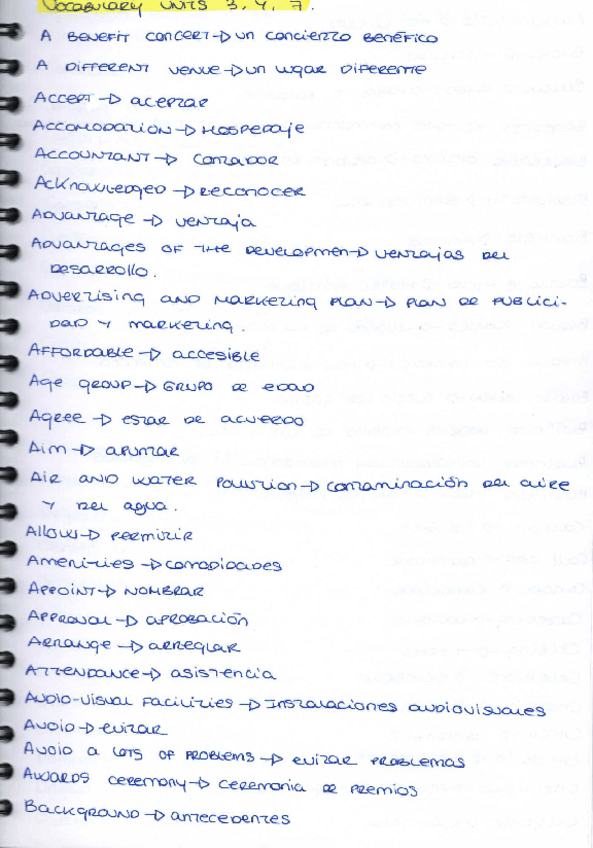 VOCABULARY UNITS 3, 4, 7.
A BENEFIT CONCERT → UN CONCIERTO BENÉFICO
A DIFFERENT VENUE → UN LUGAR DIFERENTE
ACCEPT → ACEPTAR
ACCOMODATION → HOSPEDAJE
ACCOUNTANT → CONTADOR
ACKNOWLEDGED → RECONOCER
ADVANTAGE → VENTAJA
ADVANTAGES OF THE DEVELOPMEN → VENTAJAS DEL
DESARROLLO.
ADVERTISING AND MARKETING PLAN → PLAN DE PUBLICI-
DAD Y MARKETING.
AFFORDABLE → ACCESIBLE
AGE GROUP → GRUPO DE EDAD
AGREE → ESTAR DE ACUERDO
AIM → APUNTAR
AIR AND WATER POLLUTION → CONTAMINACIÓN DEL AIRE
Y DEL AGUA.
ALLOW → PERMITIR
AMENITIES → COMODIDADES
APPOINT → NOMBRAR
APPROVAL → APROBACIÓN
ARRANGE → ARREGLAR
ATTENDANCE → ASISTENCIA
AUDIO-VISUAL FACILITIES → INSTALACIONES AUDIOVISUALES
AVOID → EVITAR
AVOID A LOTS OF PROBLEMS → EVITAR PROBLEMAS
AWARDS CEREMONY → CEREMONIA DE PREMIOS
BACKGROUND → ANTECEDENTES